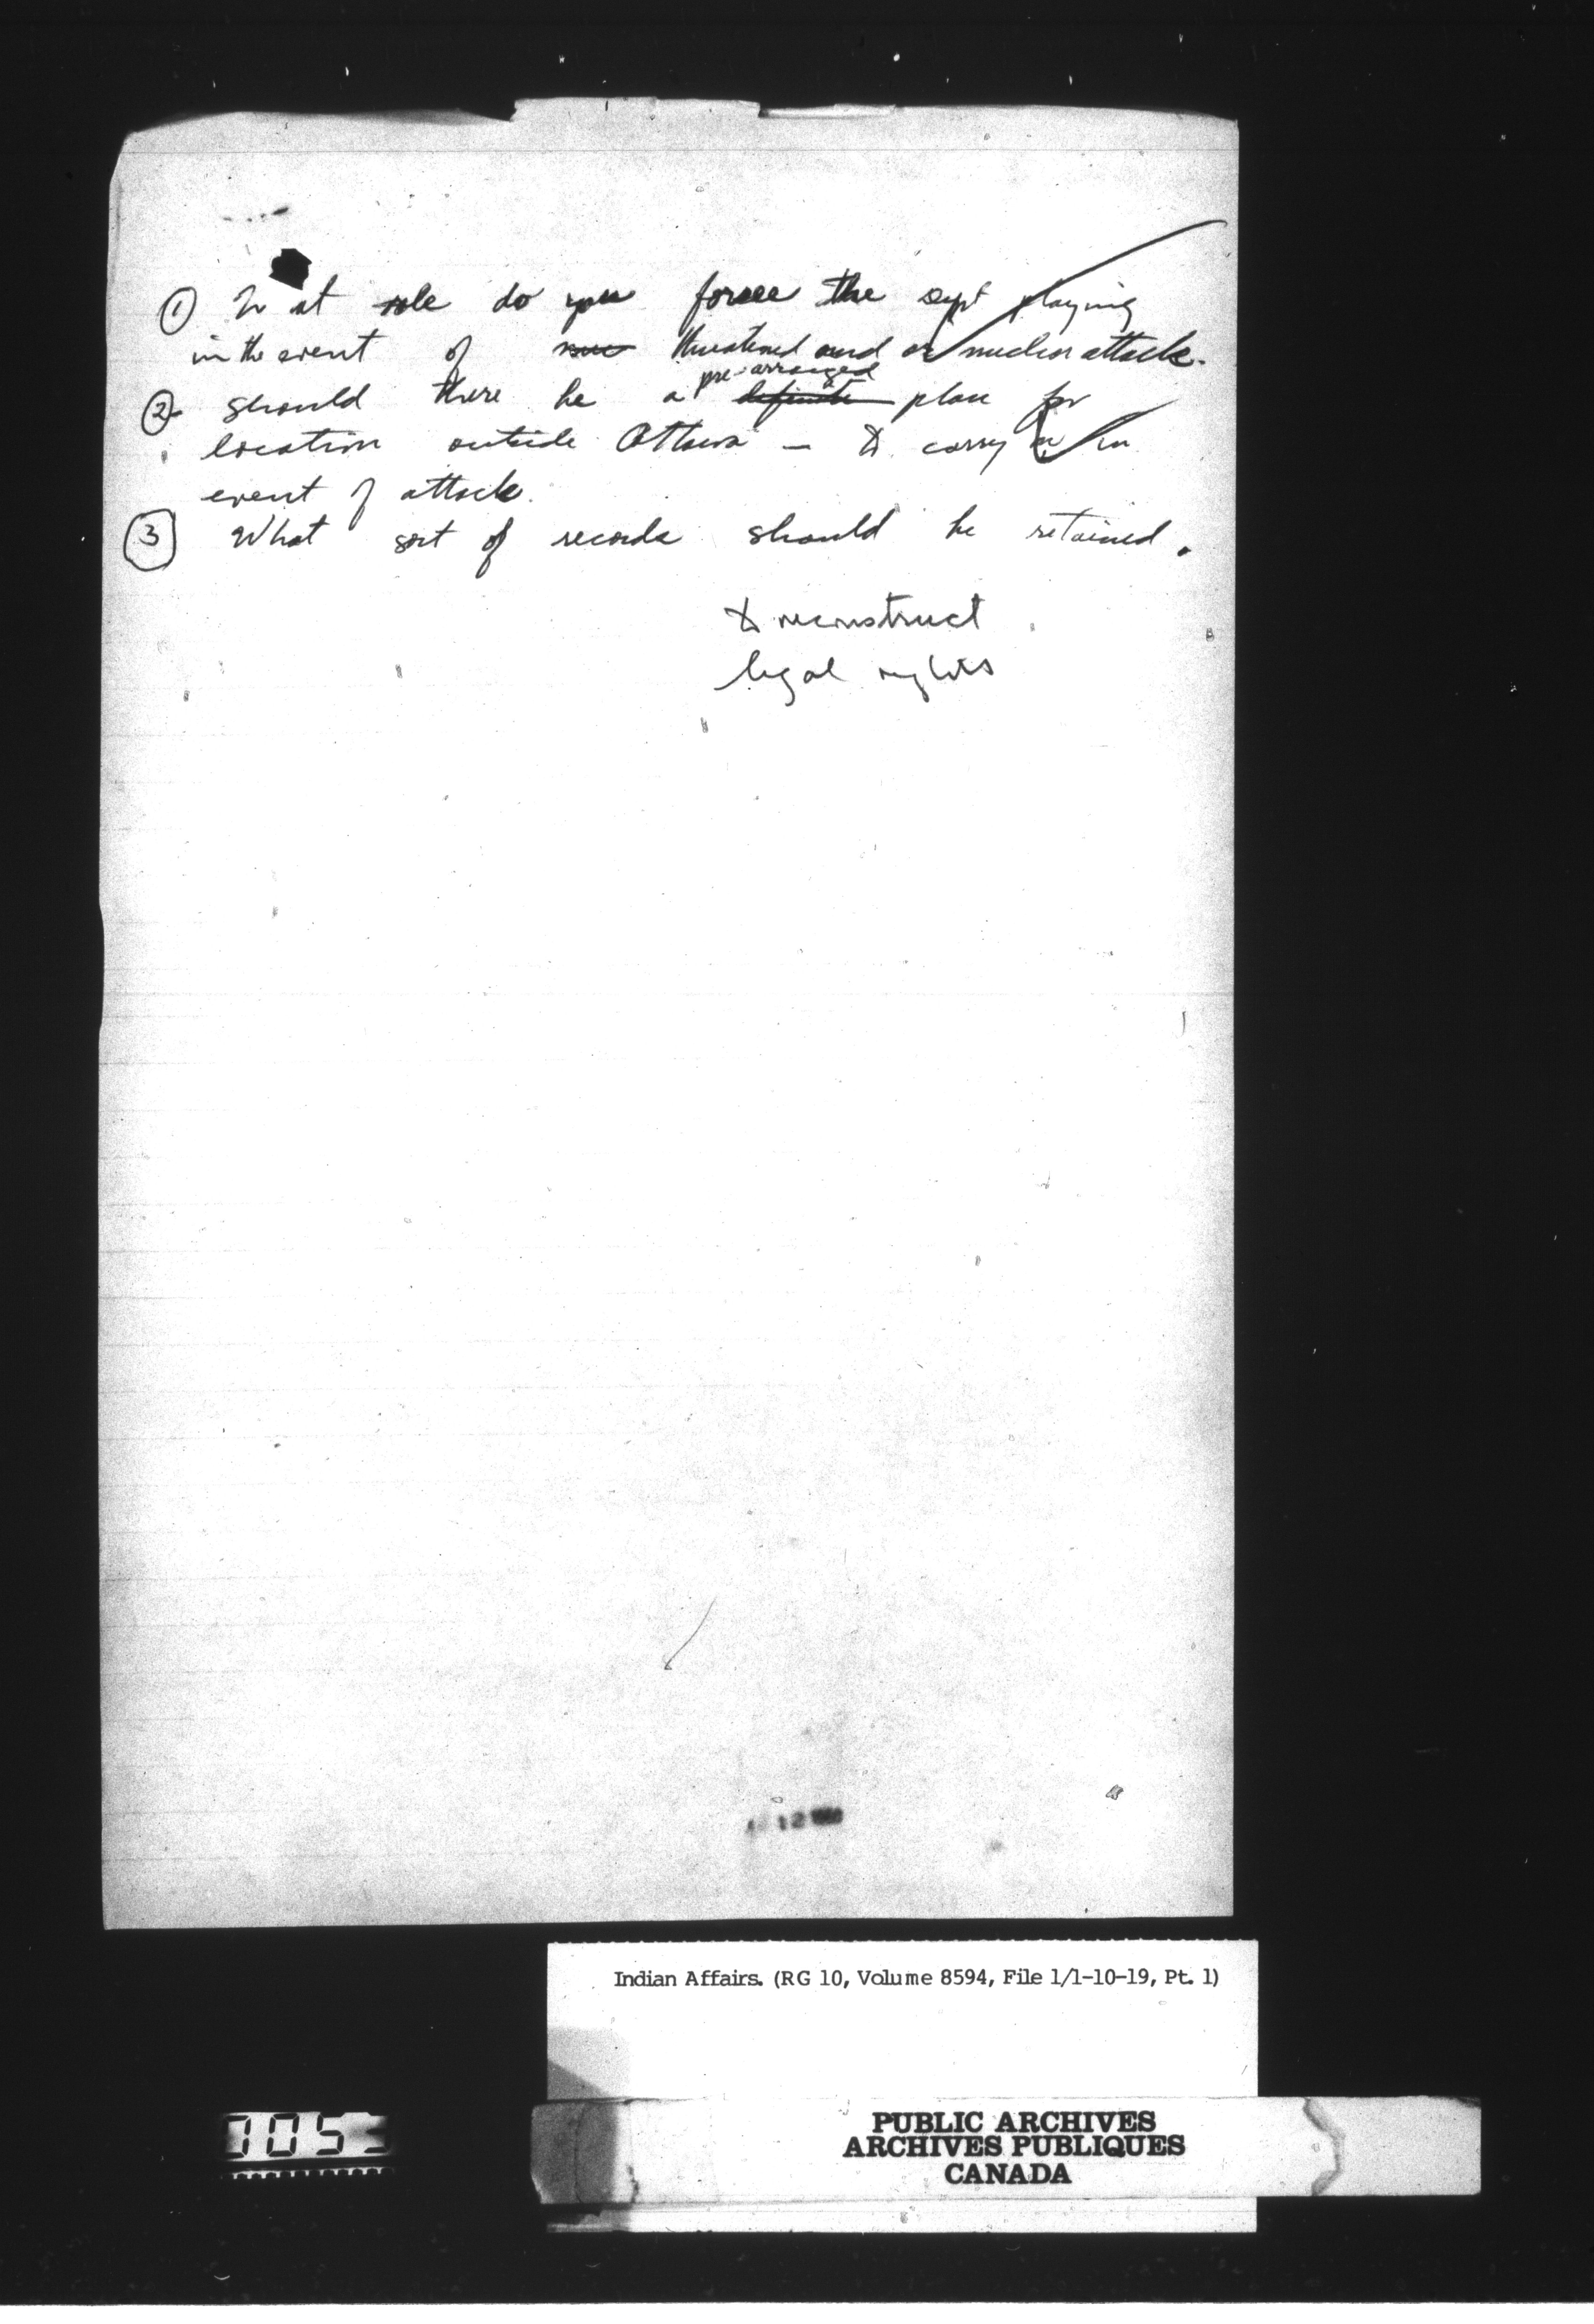 ① What role do you forsee the dept playing
in the event of ~~nuc~~ threatened and or nuclear attack.
② should there be a ~~definite~~ pre-arranged plan for
location outside Ottawa — to carry on in
event of attack.
③ What sort of records should be retained.
to reconstruct
legal rights
12
Indian Affairs. (RG 10, Volume 8594, File 1/1-10-19, Pt. 1)
1053
PUBLIC ARCHIVES
ARCHIVES PUBLIQUES
CANADA